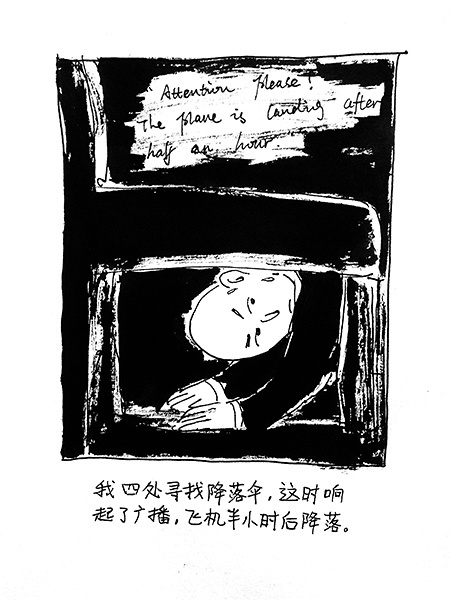 Attention please!
The plane is landing after
half an hour
我四处寻找降落伞，这时响
起了广播，飞机半小时后降落。